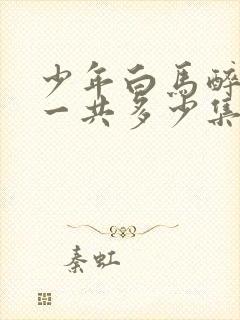 少年白馬醉
一共多少集
秦虹